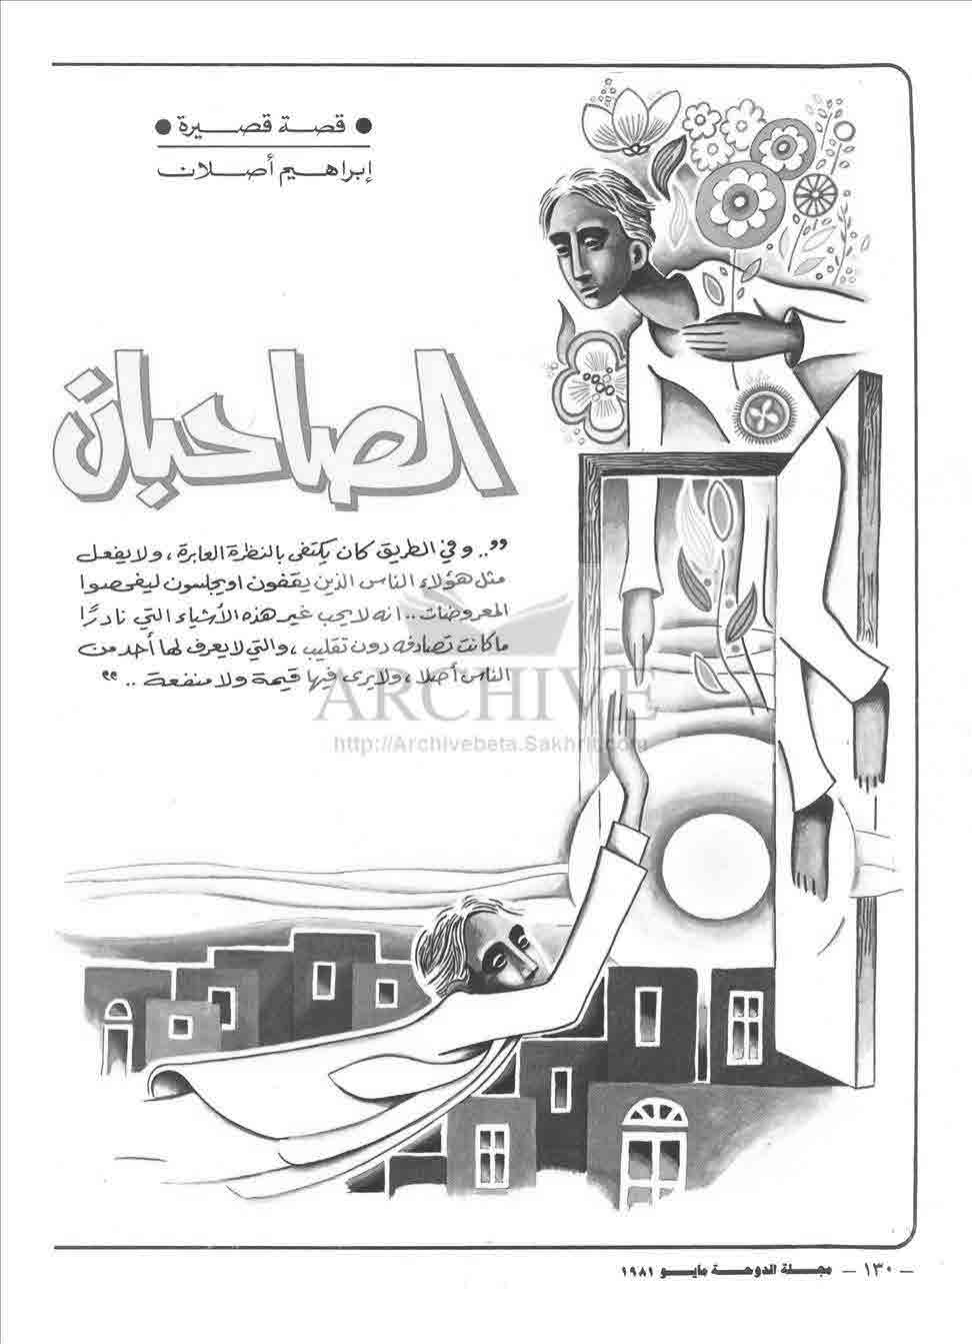 ● قصة قصيرة ●
إبراهيم أصلان
الصاحبان
”.. وفي الطريق كان يكتفى بالنظرة العابرة ، ولا يفعل
مثل هؤلاء الناس الذين يقفون او يجلسون ليفحصوا
المعروضات .. انه لا يحب غير هذه الأشياء التي نادرًا
ما كانت تصادفه دون تقليب ، والتي لا يعرف لها أحد من
الناس أصلا ، ولا يرى فيها قيمة ولا منفعة .. “
ARCHIVE
http://Archivebeta.Sakhrit.com
– ١٣٠ – مجلة الدوحة مايو ١٩٨١